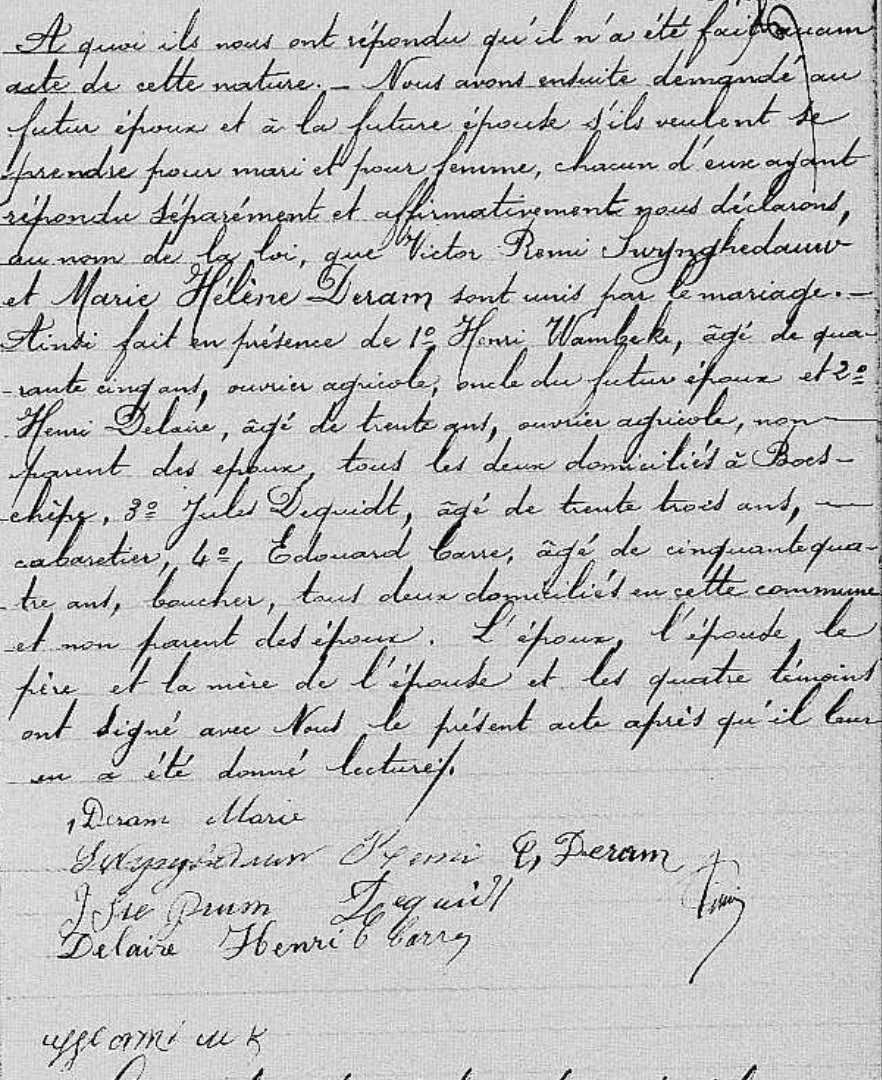 A quoi ils nous ont répondu qu'il n'a été fait aucun
acte de cette nature. — Nous avons ensuite demandé au
futur époux et à la future épouse s'ils veulent se
prendre pour mari et pour femme, chacun d'eux ayant
répondu séparément et affirmativement nous déclarons,
au nom de la loi, que Victor Remi Swynghedauw
et Marie Hélène Deram sont unis par le mariage. —
Ainsi fait en présence de 1º Henri Wambeke, âgé de qua-
-rante cinq ans, ouvrier agricole, oncle du futur époux et 2º
Henri Delaire, âgé de trente ans, ouvrier agricole, non —
parent des epoux, tous les deux domiciliés à Boes-
chêpe, 3º Jules Dequidt, âgé de trente trois ans, —
cabaretier, 4º, Edouard Carre, âgé de cinquante qua-
-tre ans, boucher, tous deux domiciliés en cette commune
et non parent des époux. L'époux, l'épouse, le
père et la mère de l'épouse et les quatre témoins
ont signé avec Nous le présent acte après qu'il leur
en a été donné lecture.
Deram Marie
Remi C, Deram
Dequidt
Delaire Henri E Carre